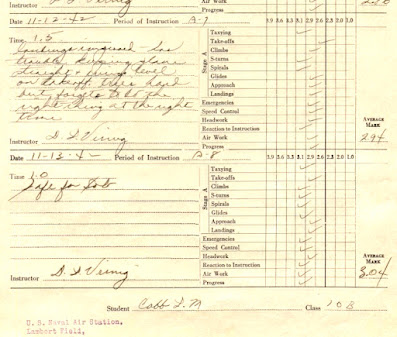 Instructor
Air Work
Progress
Date 11-12-42 Period of Instruction A-7
3.9 3.6 3.4 3.1 2.9 2.6 2.3 2.0 1.0
Time 1.5
Landings improved - has
trouble keeping plane
straight + wings level
on takeoff. tries hard
but forgets to do the
right thing at the right
time
Stage A
Taxying
Take-offs
Climbs
S-turns
Spirals
Glides
Approach
Landings
Emergencies
Speed Control
Headwork
Reaction to Instruction
Air Work
Progress
AVERAGE
MARK
2.94
Instructor
Date 11-13-42 Period of Instruction A-8
3.9 3.6 3.4 3.1 2.9 2.6 2.3 2.0 1.0
Time 1.0
Safe for Solo
Stage A
Taxying
Take-offs
Climbs
S-turns
Spirals
Glides
Approach
Landings
Emergencies
Speed Control
Headwork
Reaction to Instruction
Air Work
Progress
AVERAGE
MARK
3.04
Instructor
Student Cobb L. M Class 10B
U. S. Naval Air Station,
Lambert Field,